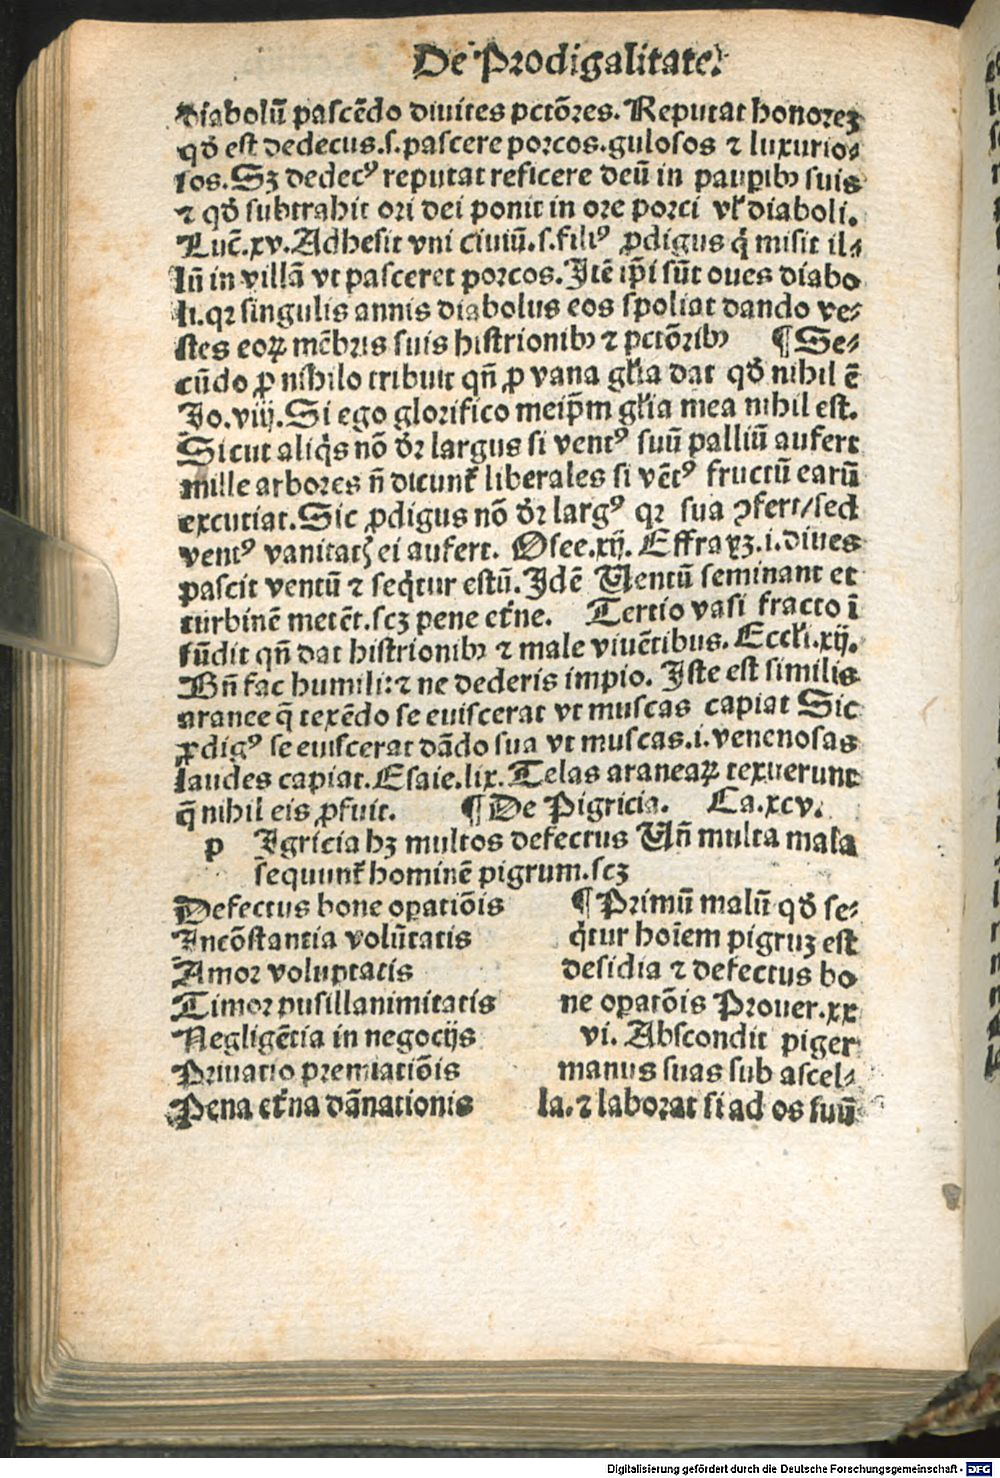 De Prodigalitate.
diabolū pascēdo diuites pctōres. Reputat honoreꝫ
qđ est dedecus.s.pascere porcos.gulosos ⁊ luxurio⸗
sos. Sꝫ dedecꝰ reputat reficere deū in pauꝑibꝫ suis
⁊ qđ subtrahit ori dei ponit in ore porci vl̓ diaboli.
Luč.xv. Adhesit vni ciuiū.s.filiꝰ ꝓdigus q̇ misit il⸗
lū in villā vt pasceret porcos. Itē ip̄i sūt oues diabo
li.qꝛ singulis annis diabolus eos spoliat dando ve⸗
stes eoꝝ mēbris suis histrionibꝫ ⁊ pctōribꝫ ¶ Se⸗
cūdo ꝓ nihilo tribuit qn̄ ꝓ vana gl̓ia dat qđ nihil ē
Io.viij. Si ego glorifico meip̄m gl̓ia mea nihil est.
Sicut aliq̇s nō dr̄ largus si ventꝰ suū palliū aufert
mille arbores n̄ dicunt̓ liberales si vētꝰ fructū earū
excutiat. Sic ꝓdigus nō dr̄ largꝰ qꝛ sua ꝯfert/sed
ventꝰ vanitatꝭ ei aufert. Osee.xij. Effraꝫ.i.diues
pascit ventū ⁊ seq̇tur estū. Idē Uentū seminant et
turbinē metēt.scꝫ pene et̓ne. Tertio vasi fracto ī
fūdit qn̄ dat histrionibꝫ ⁊ male viuētibus. Eccl̓i.xij.
Bn̄ fac humili:⁊ ne dederis impio. Iste est similis
aranee q̄ texēdo se euiscerat vt muscas capiat Sic
ꝓdigꝰ se euiscerat dādo sua vt muscas.i.venenosas
laudes capiat. Esaie.lix. Telas araneaꝝ texuerunt
q̄ nihil eis ꝓfuit. ¶ De Pigricia. Ca.xcv.
p Igricia hꝫ multos defectus Un̄ multa mala
sequunt̓ hominē pigrum.scꝫ
Defectus bone oꝑatiōis
Incōstantia volūtatis
Amor voluptatis
Timor pusillanimitatis
Negligētia in negocijs
Priuatio premiatiōis
Pena et̓na dānationis
¶ Primū malū qđ se⸗
q̇tur hoīem pigruꝫ est
desidia ⁊ defectus bo
ne oꝑatōis Prouer.xx
vi. Abscondit piger
manus suas sub ascel⸗
la. ⁊ laborat si ad os suū
Digitalisierung gefördert durch die Deutsche Forschungsgemeinschaft - DFG